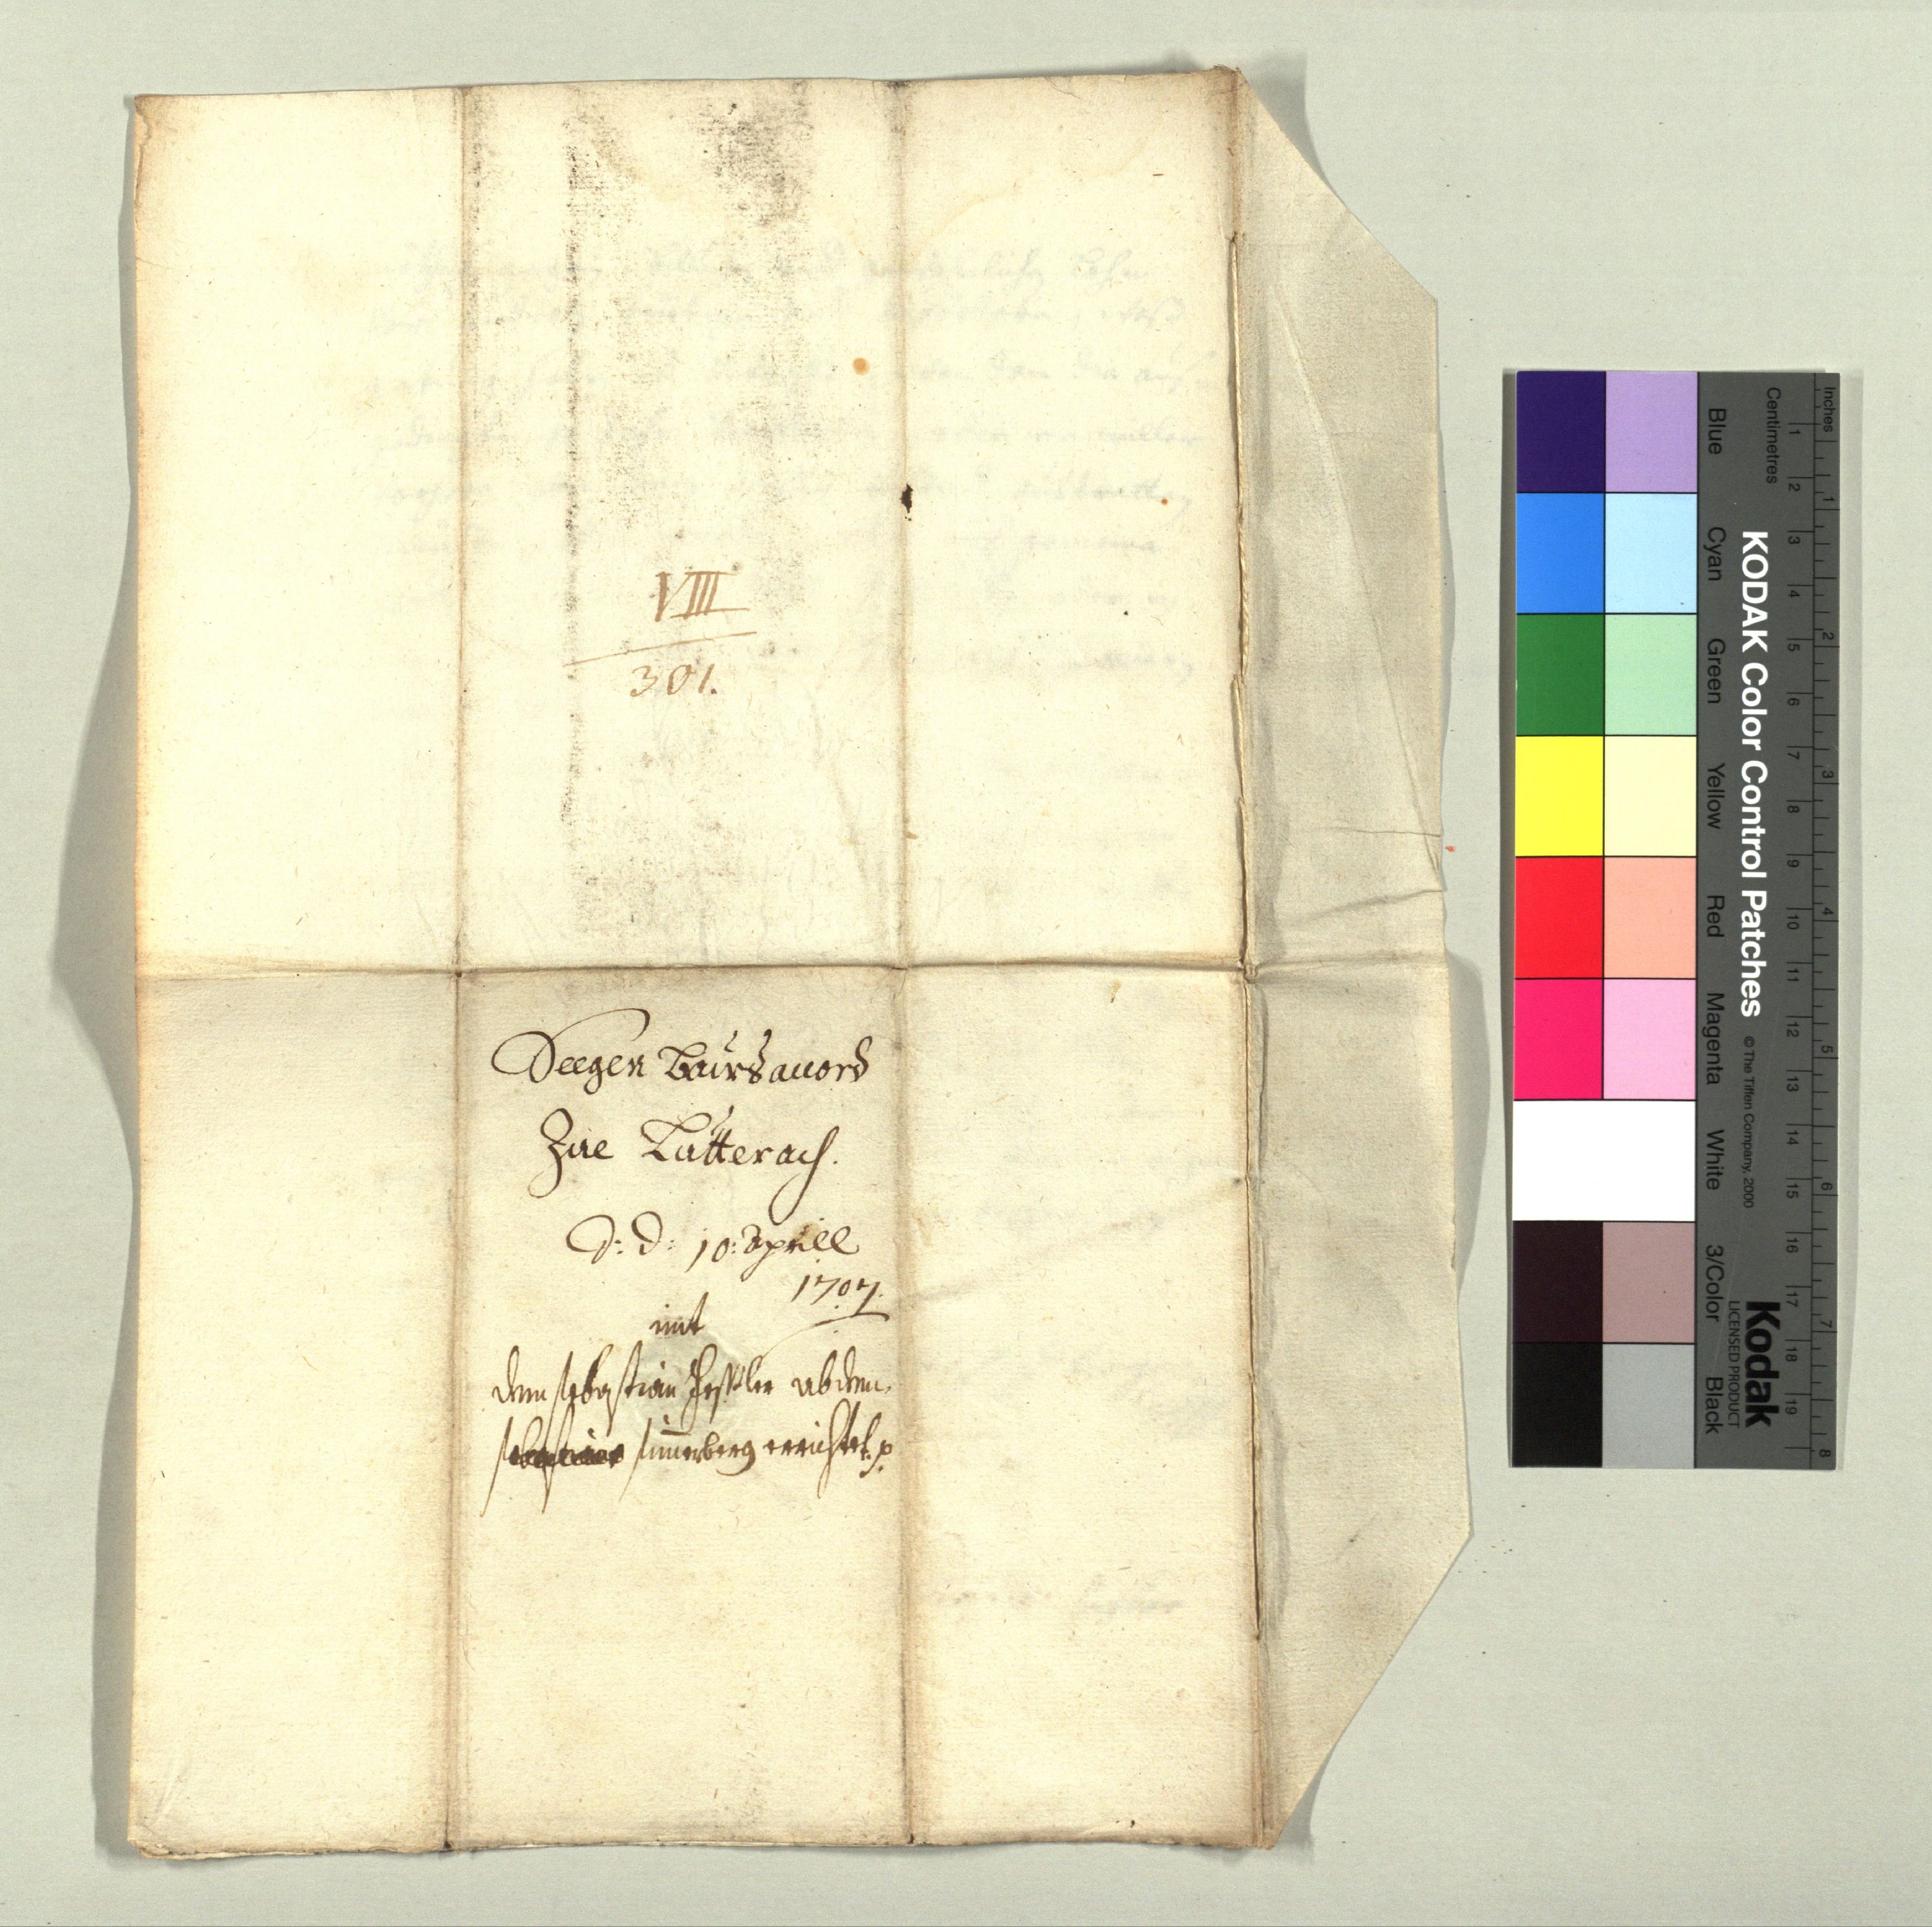 VIII
301.
Seegen Baus accord
Zue Lautterach.
D: D: 10: Aprill
1707.
mit
dem sebastian Hessler ab dem
simerberg errichtet p
Inches
Centimetres
1 2 3 4 5 6 7 8
1 2 3 4 5 6 7 8 9 10 11 12 13 14 15 16 17 18 19
KODAK Color Control Patches
© The Tiffen Company, 2000
Kodak
LICENSED PRODUCT
Blue
Cyan
Green
Yellow
Red
Magenta
White
3/Color
Black